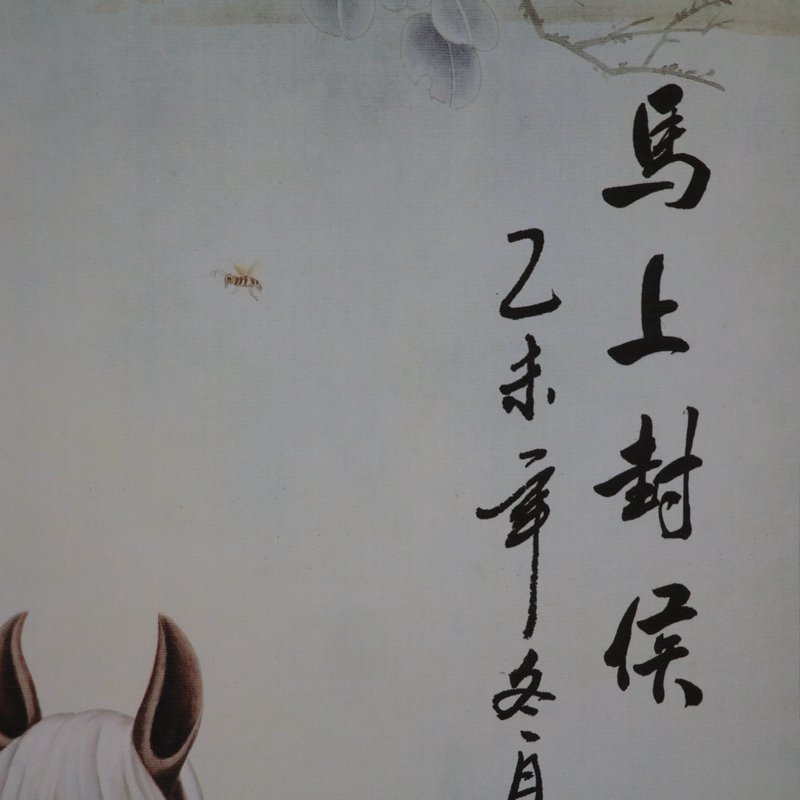 馬上封侯
乙未年冬